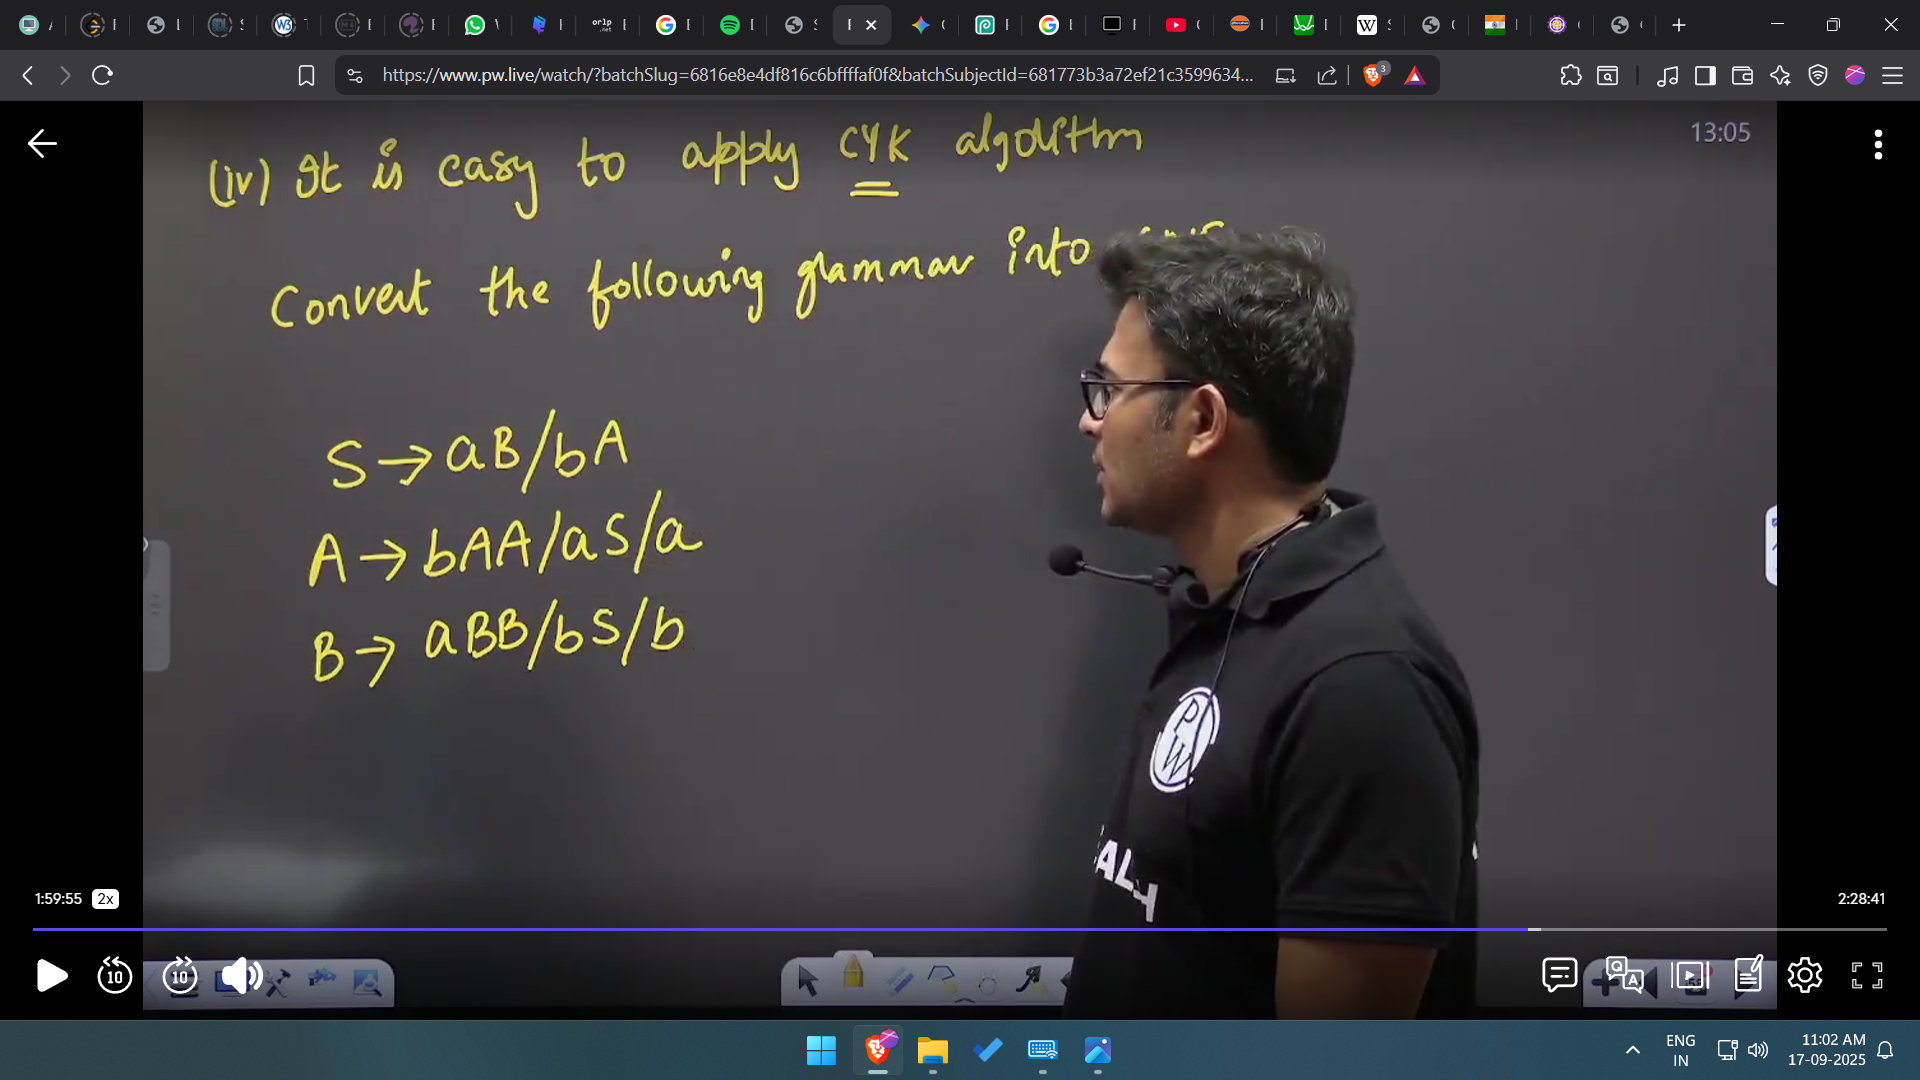 https://www.pw.live/watch/?batchSlug=6816e8e4df816c6bffffaf0f&batchSubjectId=681773b3a72ef21c3599634...
3
13:05
(iv) It is easy to apply CYK algorithm
Convert the following grammar into
S → aB/bA
A → bAA/aS/a
B → aBB/bS/b
PW
1:59:55 2x
2:28:41
10 10
ENG
IN
11:02 AM
17-09-2025